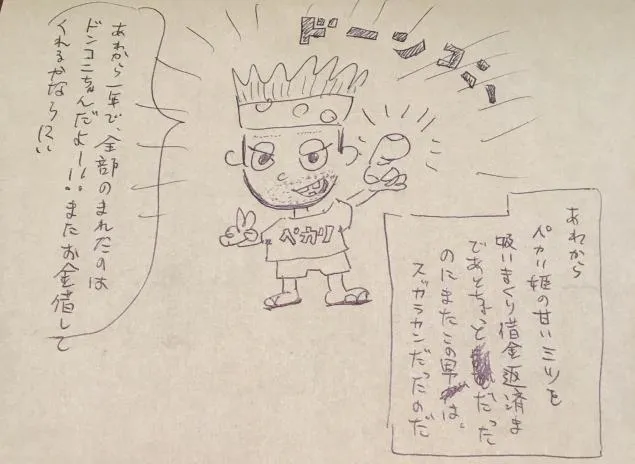 ドーン
あれから
ペカリ姫の甘いミツを
吸いまくり借金返済ま
であとちょっとだった
のにまたこの男は、
スガラカンだったのだ
ペカリ
あれから一年で、全部のまれたのは
ドンコニちゃんだよー!!またお金借して
くれるかな